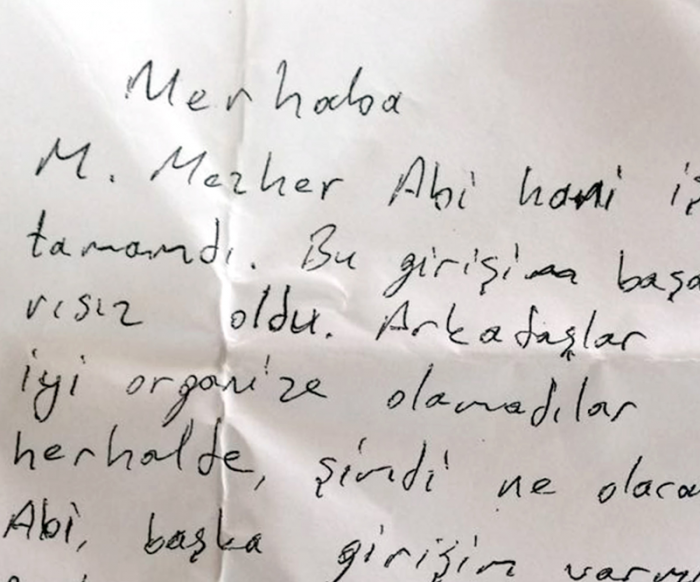 Merhaba
M. Mazhar Abi hani iş
tamamdı. Bu girişim başa
rısız oldu. Arkadaşlar
iyi organize olamadılar
herhalde, şimdi ne olaca
Abi, başka girişim varm